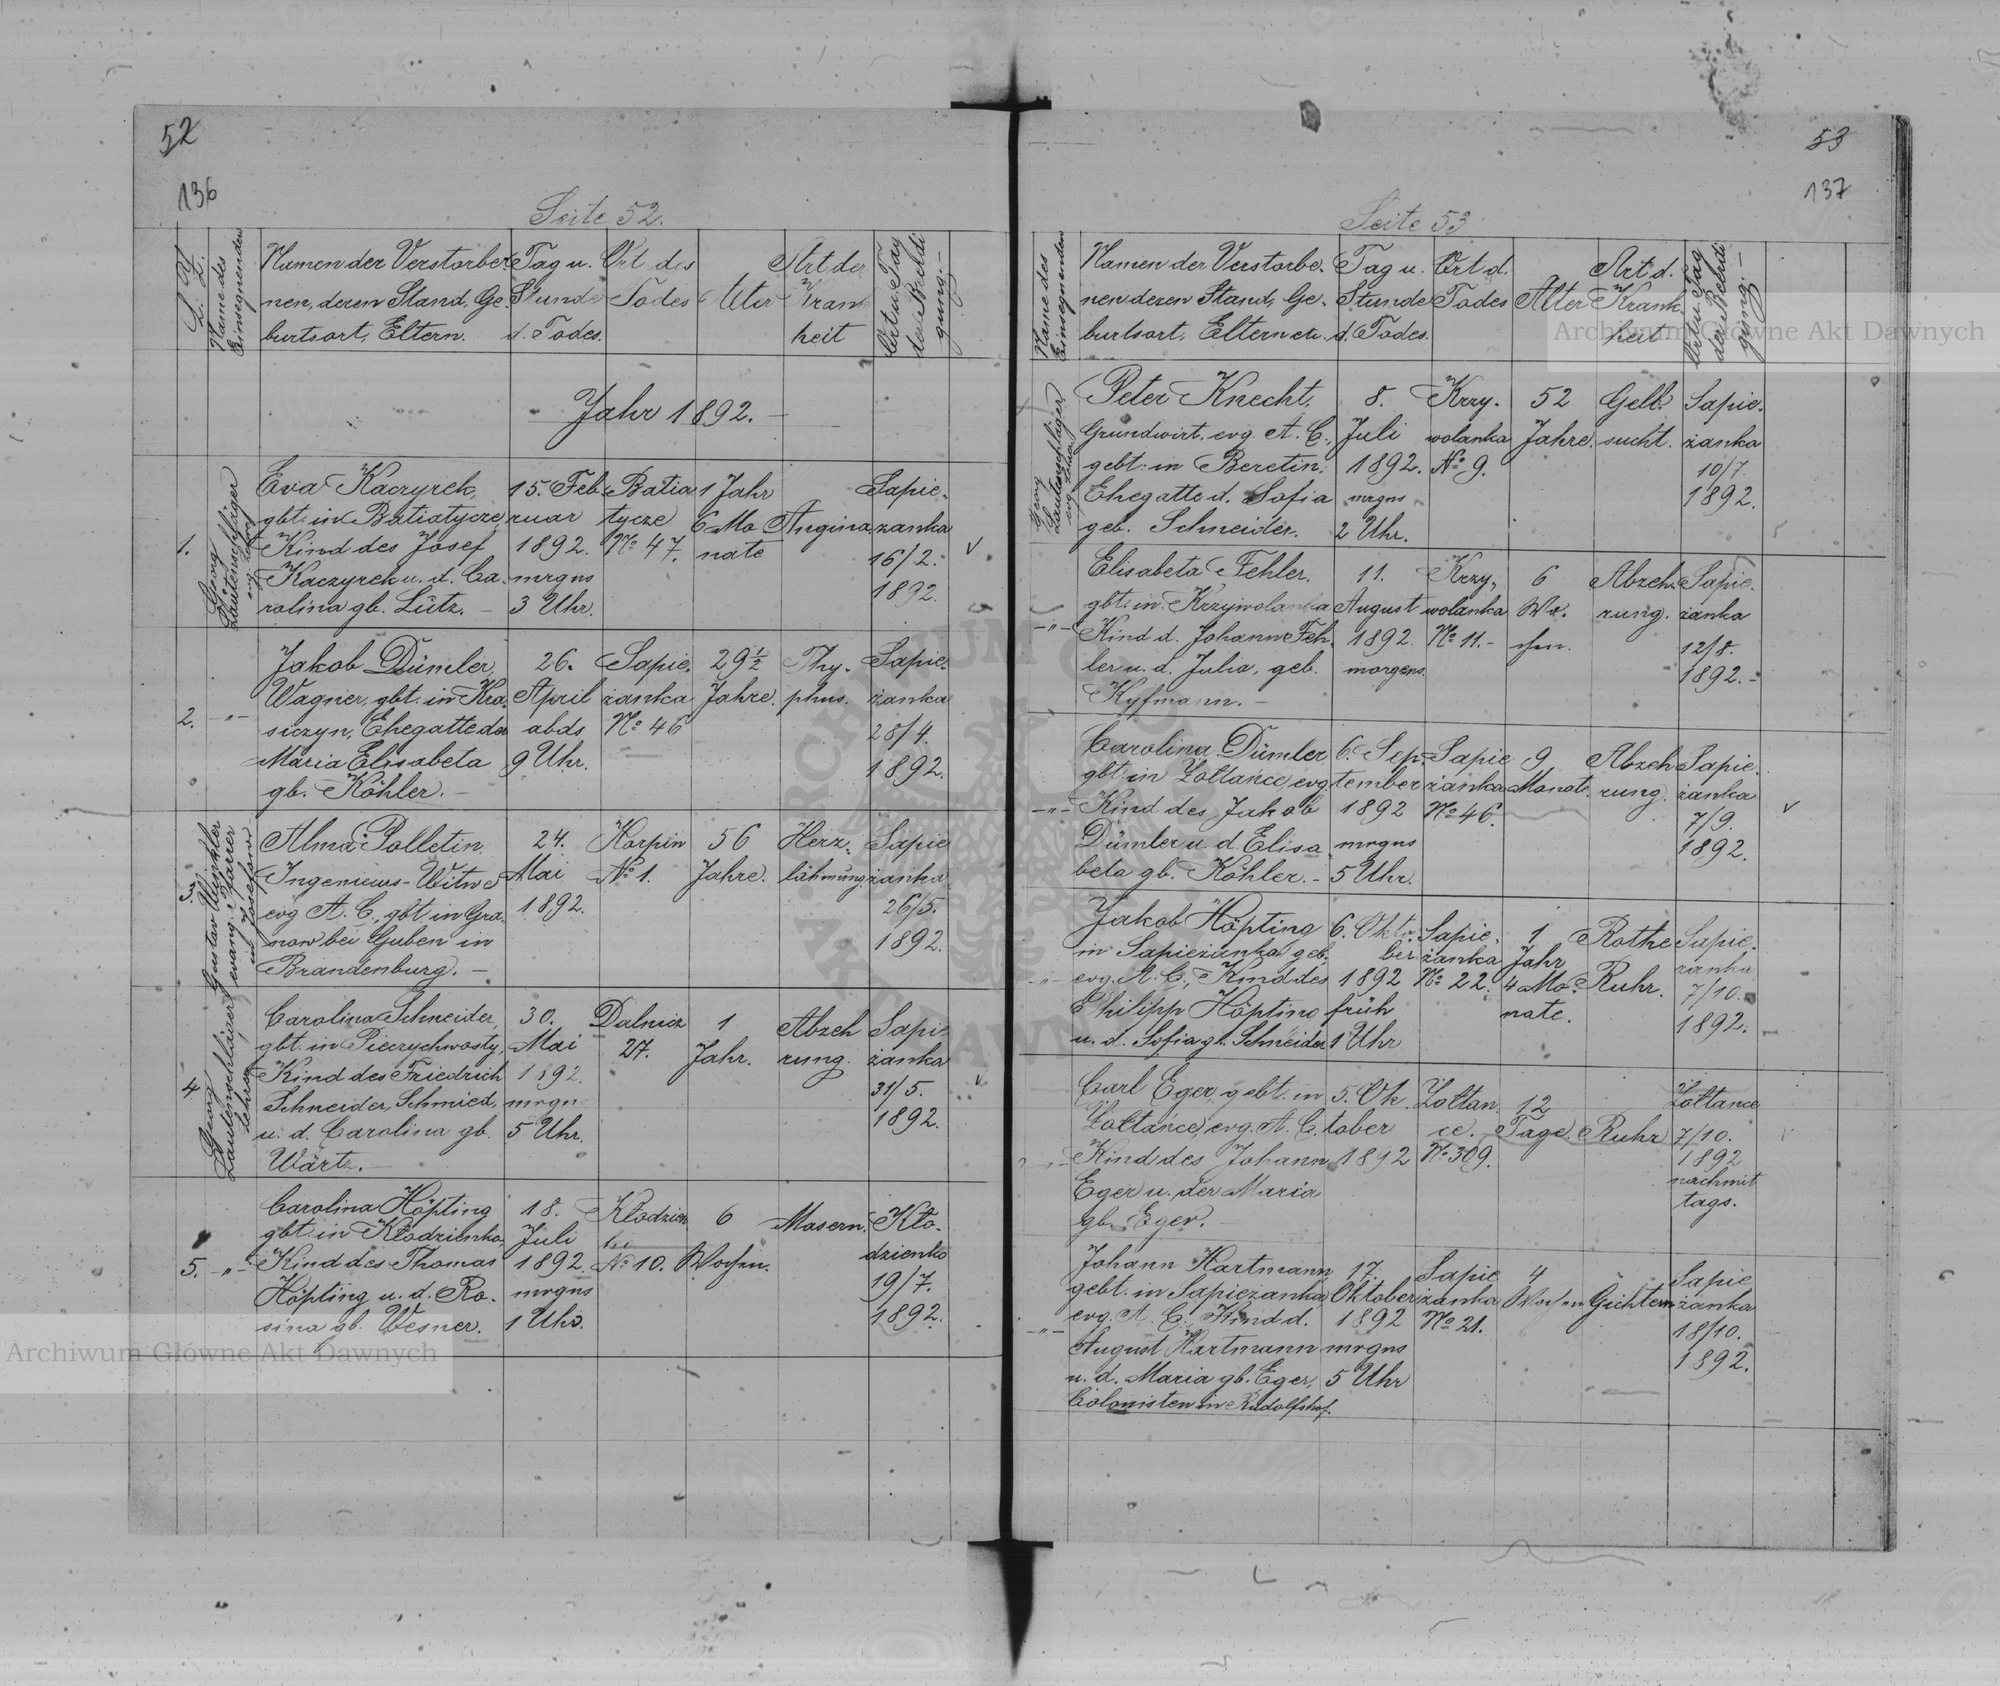 52
136
Seite 52.
L. Z.
Name des
Einsegnenden
Namen der Verstorbe-
nen, deren Stand, Ge-
burtsort, Eltern.
Tag u.
Stunde
d. Todes.
Ort des
Todes
Alter
Art der
Krank
heit
Ort u. Tag
der Beerdi
gung.-
Jahr 1892.
1.
Georg
Lautenschläger
evg. Lehrer
Eva Kaczyrek,
gbt: in Batiatycze,
Kind des Josef
Kaczyrek u. d. Ca-
rolina gb. Lütz. -
15. Feb-
ruar
1892.
mrgns
3 Uhr.
Batia
tycze
No 47.
1 Jahr
6 Mo
nate
Angina
Sapie-
zanka
16/2.
1892.
v
2.
-"-
Jakob Dümler,
Wagner, gbt. in Kra-
siczyn, Ehegatte der
Maria Elisabeta
gb. Köhler. -
26.
April
abds
9 Uhr.
Sapie-
żanka
No 46
29 ½
Jahre.
Thy-
phus.
Sapie-
żanka
28/4.
1892.
3.
Gustav Winkler
evang. Pfarrer
in Josefow
Alma Polletin
Ingenieurs-Witwe
evg A. C., gbt. in Gra-
now bei Guben in
Brandenburg. -
24.
Mai
1892.
Korpin
No 1.
56
Jahre.
Herz-
lähmung.
Sapie
żanka
26/5.
1892.
4
Georg
Lautenschläger
Lehrer
Carolina Schneider,
gbt. in Pieczychwosty,
Kind des Friedrich
Schneider, Schmied,
u. d. Carolina gb.
Wärtz. -
30.
Mai
1892.
mrgn
5 Uhr.
Dalnicz
27.
1
Jahr.
Abzeh
rung.
Sapie
żanka
31/5.
1892.
v
5.
-"-
Carolina Höpting
gbt. in Kłodzienko
Kind des Thomas
Höpting u. d. Ro-
sina gb. Wesner.
18.
Juli
1892.
mrgns
1 Uhr.
Kłodzien
ko
No 10.
6
Wochen.
Masern.
Kło-
dzienko
19/7.
1892.
53
137
Seite 53
Name des
Einsegnenden
Namen der Verstorbe-
nen deren Stand, Ge-
burtsort, Eltern etc.
Tag u.
Stunde
d. Todes.
Ort d.
Todes
Alter
Art d.
Krank-
heit
Ort u. Tag
der Beerdi
gung.-
Georg
Lautenschläger
evg. Lehrer
Peter Knecht,
Grundwirt, evg. A. C.,
gebt: in Beretin,
Ehegatte d. Sofia
geb. Schneider.
8.
Juli
1892.
mrgns
2 Uhr.
Krzy-
wolanka
No 9.
52
Jahre.
Gelb-
sucht.
Sapie-
żanka
10/7.
1892.
-"-
Elisabeta Fehler.
gbt: in Krzywolanka
Kind d. Johann Feh-
ler u. d. Julia, geb.
Kyfmann. -
11.
August
1892.
morgens
Krzy-
wolanka
No 11.-
6
Wo-
chen.
Abzeh-
rung.
Sapie-
żanka
12/8.
1892.-
-"-
Carolina Dümler
gbt in Żołtańce, evg
Kind des Jakob
Dümler u. d. Elisa-
beta gb. Köhler. -
6. Sep-
tember
1892
mrgns
5 Uhr.
Sapie
żanka
No 46.
9
Monate.
Abzeh
rung.
Sapie-
żanka
7/9.
1892.
v
-"-
Jakob Höpting
in Sapieżanka geb.
evg. A. C., Kind des
Philipp Höpting
u. d. Sofia gb. Schneider
6. Okto-
ber
1892
früh
1 Uhr
Sapie-
żanka
No 22.
1
Jahr
4 Mo-
nate.
Rothe
Ruhr.
Sapie-
żanka
7/10.
1892.
-"-
Carl Eger, gebt. in
Żołtańce, evg. A. C.
Kind des Johann
Eger u. der Maria
gb. Eger. -
5. Ok-
tober
1892
Żołtan-
ce.
No 309.
12
Tage.
Ruhr
Żołtance
7/10.
1892
nachmit
tags.
v
-"-
Johann Hartmann
gebt. in Sapiezanka,
evg. A. C., Kind d.
August Hartmann
u. d. Maria gb. Eger,
Colonisten in Rudolfshof.
17.
Oktober
1892
mrgns
5 Uhr
Sapie
żanka
No 21.
4
Wochen
Gichtern
Sapie
żanka
18/10.
1892.
Archiwum Główne Akt Dawnych
Archiwum Główne Akt Dawnych